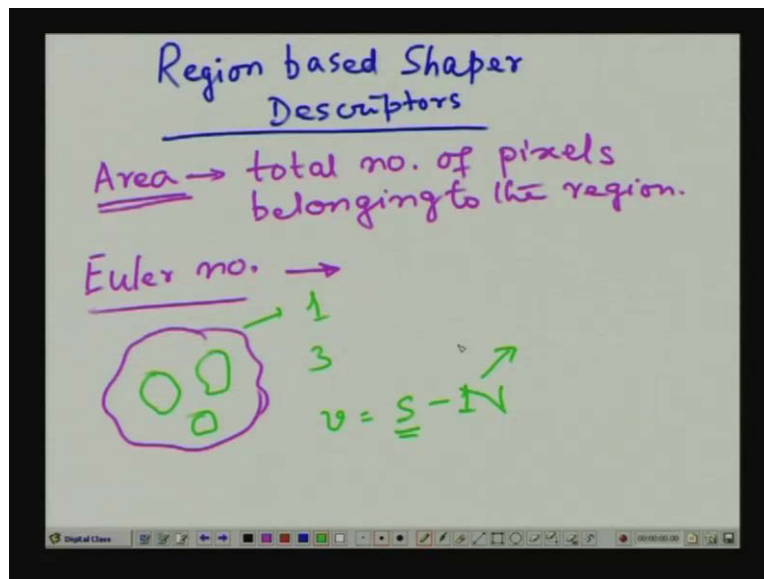 Region based Shaper
Descriptors
Area → total no. of pixels
belonging to the region.
Euler no. →
1
3
v = S - N
Digital Class
00:00:00.00